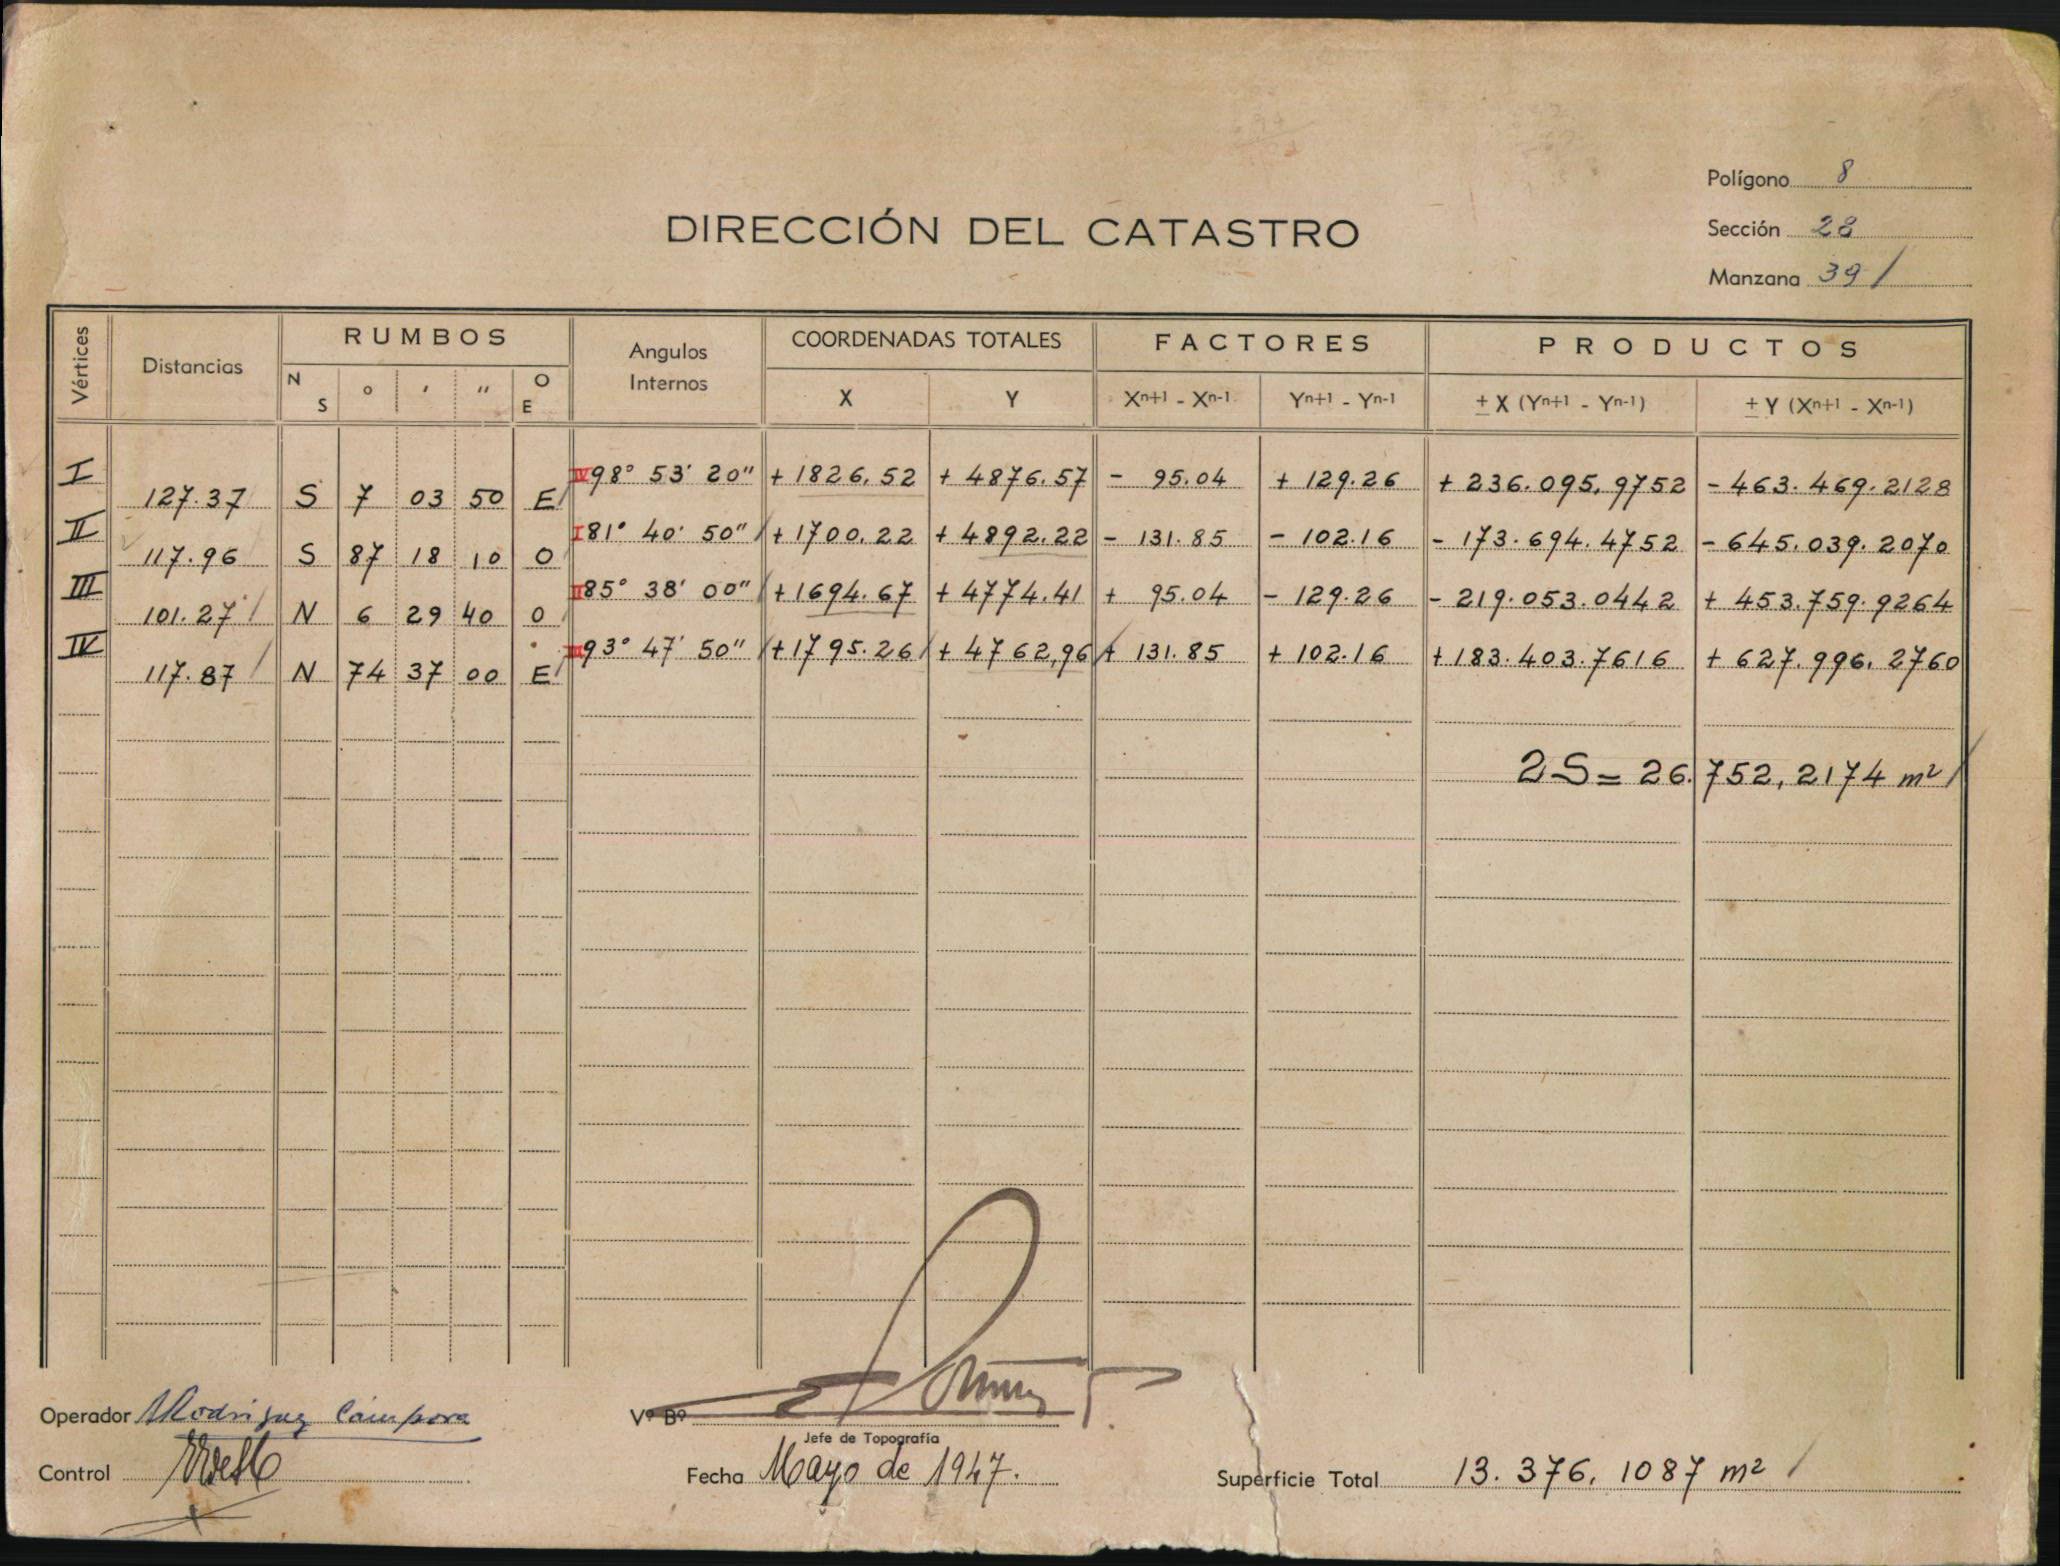 Polígono 8
DIRECCIÓN DEL CATASTRO
Sección 28
Manzana 39 /
Vértices Distancias RUMBOS Angulos Internos COORDENADAS TOTALES FACTORES PRODUCTOS
N S ° ′ ″ O E X Y Xn+1 - Xn-1 Yn+1 - Yn-1 ± X (Yn+1 - Yn-1) ± Y (Xn+1 - Xn-1)
I IV 98° 53' 20" + 1826,52 + 4876.57 - 95.04 + 129.26 + 236.095,9752 - 463.469.2128
127.37 S 7 03 50 E
II I 81° 40' 50" + 1700.22 + 4892.22 - 131.85 - 102.16 - 173.694.4752 - 645.039.2070
117.96 S 87 18 10 O
III II 85° 38' 00" + 1694.67 + 4774.41 + 95.04 - 129.26 - 219.053.0442 + 453.759.9264
101.27 N 6 29 40 O
IV III 93° 47' 50" + 1795.26 + 4762,96 + 131.85 + 102.16 + 183.403.7616 + 627.996.2760
117.87 N 74 37 00 E
2S = 26.752,2174 m² /
Operador Rodriguez Cámpora
Vº Bº
Jefe de Topografía
Control
Fecha Mayo de 1947.
Superficie Total 13.376,1087 m² /